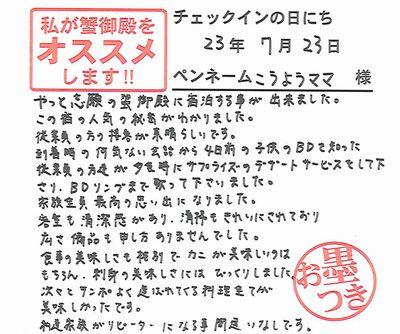 私が蟹御殿を
オススメ
します!!
チェックインの日にち
23年 7月23日
ペンネーム こうようママ 様
やっと志願の蟹御殿に宿泊する事が出来ました。
この宿の人気の秘密がわかりました。
従業員の方の接客が素晴らしいです。
到着時の何気ない会話から4日前の子供のBDを知った
従業員の方達が夕食時にサプライズのデザートサービスをして下
さり、BDソングまで歌って下さいました。
家族全員最高の思い出になりました。
客室も清潔感があり、清掃もきれいにされており
広さ備品も申し分ありませんでした。
食事の美味しさも格別で カニが美味しいのは
もちろん、刺身の美味しさには びっくりしました。
次々とテンポよく運ばれてくる料理全てが
美味しかったです。
和庭家族がリピーターになる事間違いなしです。
お墨
つき